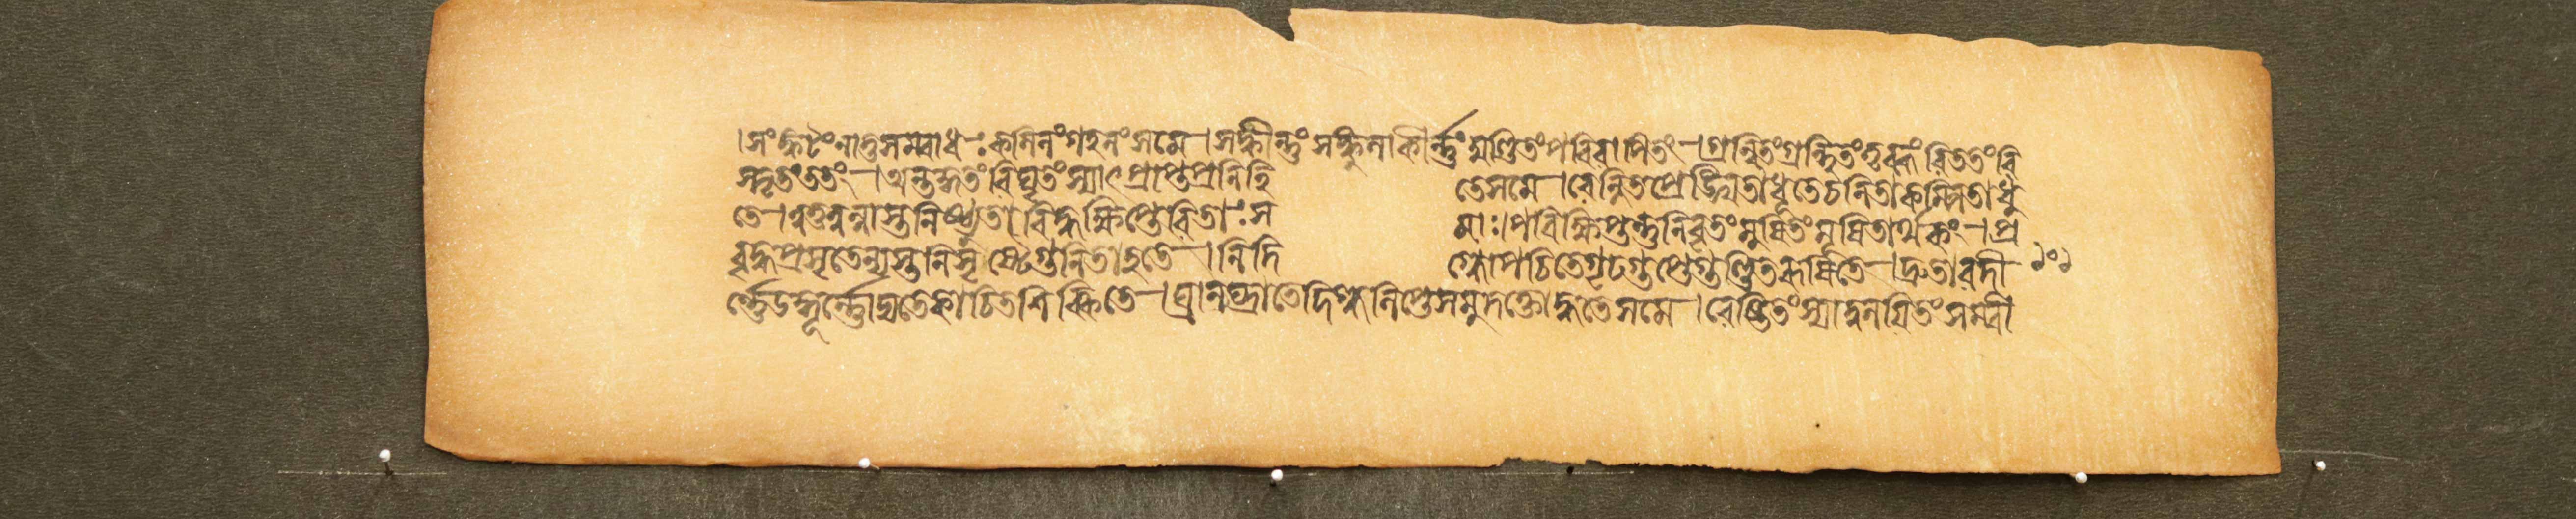 ।সংকটংনাতুসম্বাধঃকলিলংগহনংসমে।সঙ্কীর্ন্নংসঙ্কুলাকীর্ন্নংমুণ্ডিতংপরিবাপিতং।গ্রন্থিতংগ্রন্থিতংদৃব্ধংবিততংবি
স্তৃতংততং।অন্তর্গতংবিস্মৃতংস্যাৎপ্রাপ্তপ্রনিহি তেসমে।বেল্লিতপ্রেঙ্খিতাধূতচলিতাকম্পিতাধু
তে।নুত্তনুন্নাস্তনিষ্ঠ্যূতাবিদ্ধক্ষিপ্তেরিতাঃস মাঃ।পরিক্ষিপ্তন্তুনিবৃতংমূষিতংমুষিতার্থকং।প্র
বৃদ্ধপ্রসৃতেন্যস্তনিসৃষ্টেগুনিতাহতে।নিদি গ্ধোপচিতেগূঢগুপ্তেগুণ্ঠিতরূষিতে।দ্রুতাবদী
র্ন্নেউদ্গূর্ন্নোদ্যতেকাচিতশিক্যিতে।ঘ্রানঘ্রাতেদিগ্ধলিপ্তেসমুদক্তোদ্ধৃতেসমে।বেষ্টিতংস্যাদ্বলয়িতংসম্বী
১০১